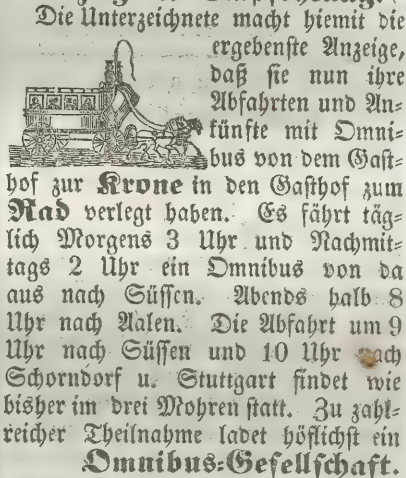 Die Unterzeichnete macht hiemit die
ergebenste Anzeige,
daß sie nun ihre
Abfahrten und An=
künfte mit Omni=
bus von dem Gast=
hof zur Krone in den Gasthof zum
Rad verlegt haben. Es fährt täg=
lich Morgens 3 Uhr und Nachmit=
tags 2 Uhr ein Omnibus von da
aus nach Süssen. Abends halb 8
Uhr nach Aalen. Die Abfahrt um 9
Uhr nach Süssen und 10 Uhr nach
Schorndorf u. Stuttgart findet wie
bisher im drei Mohren statt. Zu zahl=
reicher Theilnahme ladet höflichst ein
Omnibus=Gesellschaft.